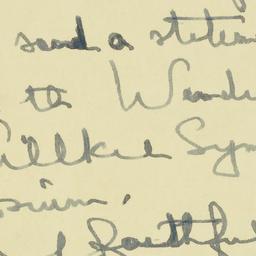 send a statem
to the Wende
Willkie Sym
osium,
faithful